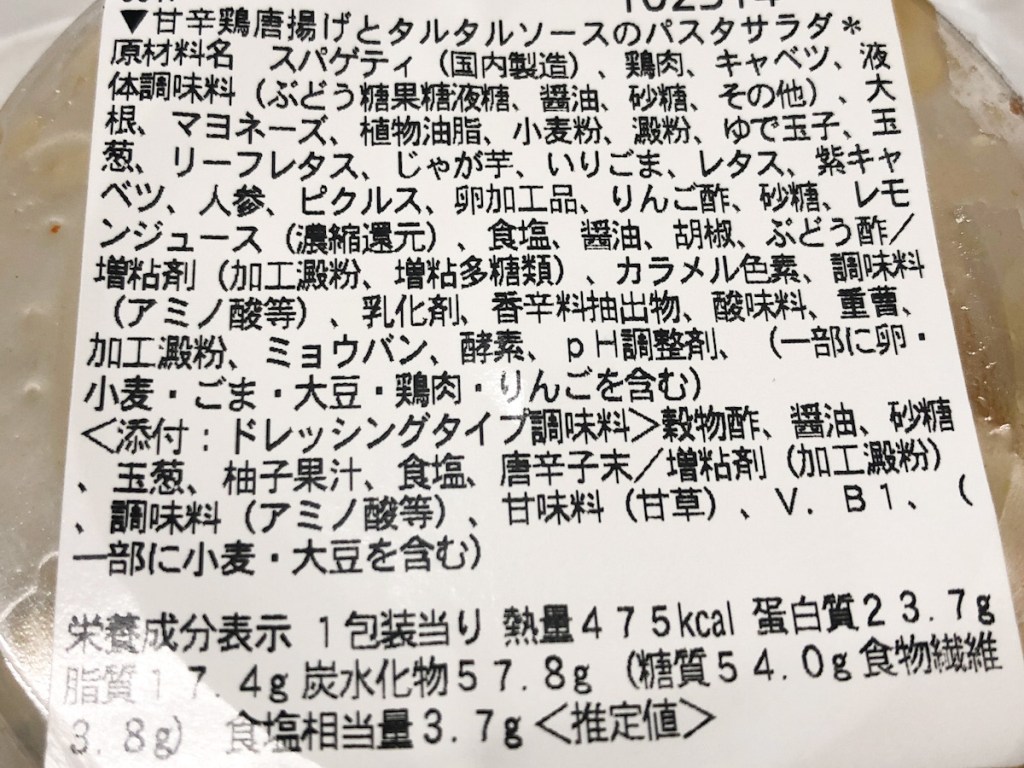 ▼甘辛鶏唐揚げとタルタルソースのパスタサラダ＊
原材料名　スパゲティ（国内製造）、鶏肉、キャベツ、液
体調味料（ぶどう糖果糖液糖、醤油、砂糖、その他）、大
根、マヨネーズ、植物油脂、小麦粉、澱粉、ゆで玉子、玉
葱、リーフレタス、じゃが芋、いりごま、レタス、紫キャ
ベツ、人参、ピクルス、卵加工品、りんご酢、砂糖、レモ
ンジュース（濃縮還元）、食塩、醤油、胡椒、ぶどう酢／
増粘剤（加工澱粉、増粘多糖類）、カラメル色素、調味料
（アミノ酸等）、乳化剤、香辛料抽出物、酸味料、重曹、
加工澱粉、ミョウバン、酵素、ｐＨ調整剤、（一部に卵・
小麦・ごま・大豆・鶏肉・りんごを含む）
＜添付：ドレッシングタイプ調味料＞穀物酢、醤油、砂糖
、玉葱、柚子果汁、食塩、唐辛子末／増粘剤（加工澱粉）
、調味料（アミノ酸等）、甘味料（甘草）、Ｖ．Ｂ１、（
一部に小麦・大豆を含む）
栄養成分表示 １包装当り 熱量４７５kcal 蛋白質２３.７g
脂質１７.４g 炭水化物５７.８g（糖質５４.０g 食物繊維
３.８g）食塩相当量３.７g＜推定値＞